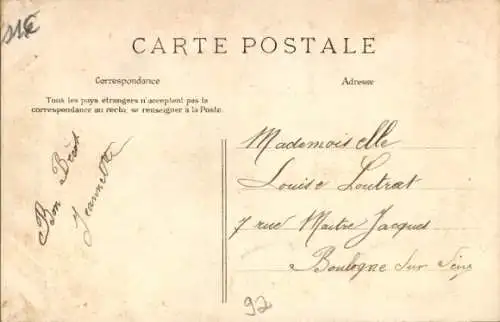 CARTE POSTALE
Correspondance
Adresse
Tous les pays étrangers n'acceptent pas la
correspondance au recto, se renseigner à la Poste.
Bon
Jeannette
Mademoiselle
Louise Loutrat
7 rue Maitre Jacques
Boulogne sur Seine
92